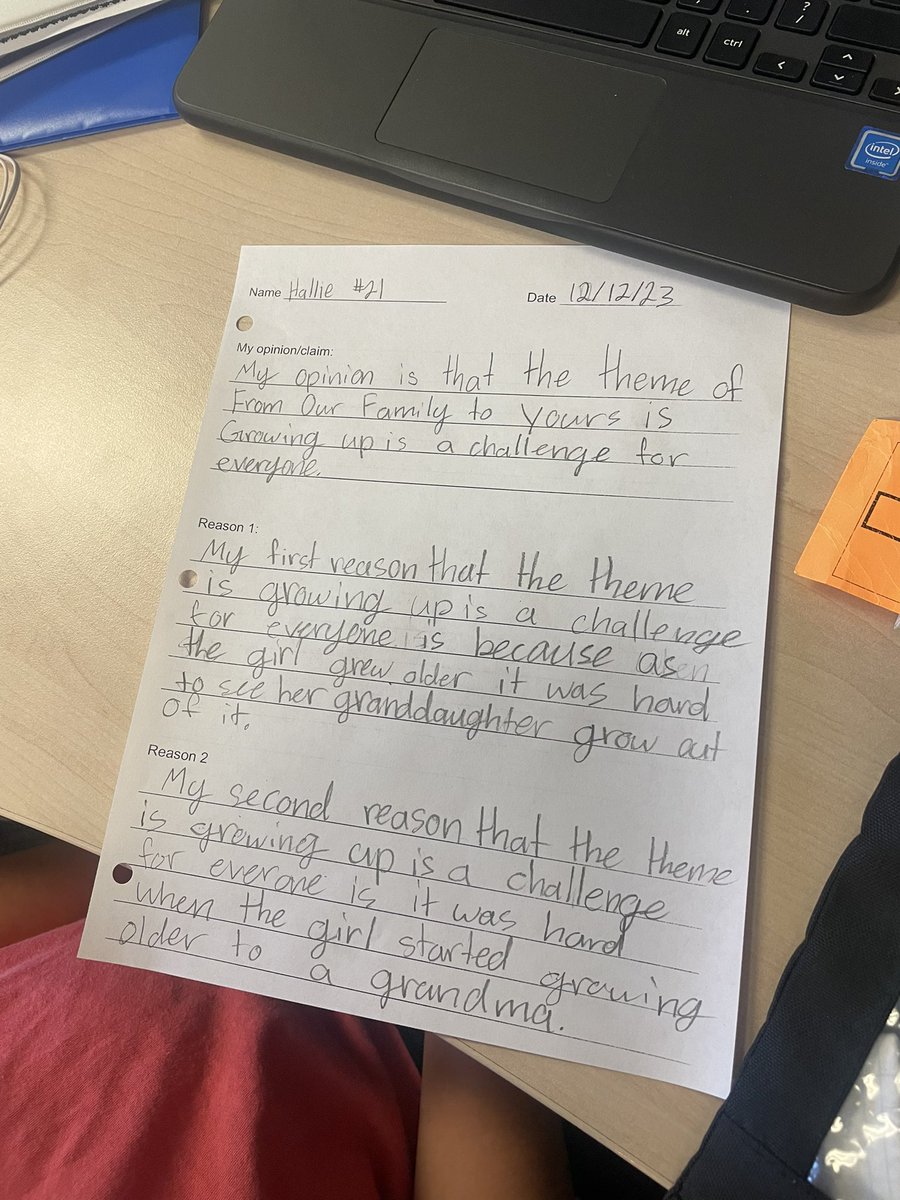 alt
ctrl
?
/
intel
inside
Name Hallie #21
Date 12/12/23
My opinion/claim:
My opinion is that the theme of
From Our Family to yours is
Growing up is a challenge for
everyone.
Reason 1:
My first reason that the theme
is growing up is a challenge
for everyone is because as
the girl grew older it was hard
to see her granddaughter grow out
of it.
Reason 2
My second reason that the theme
is growing up is a challenge
for everone is it was hard
when the girl started growing
older to a grandma.